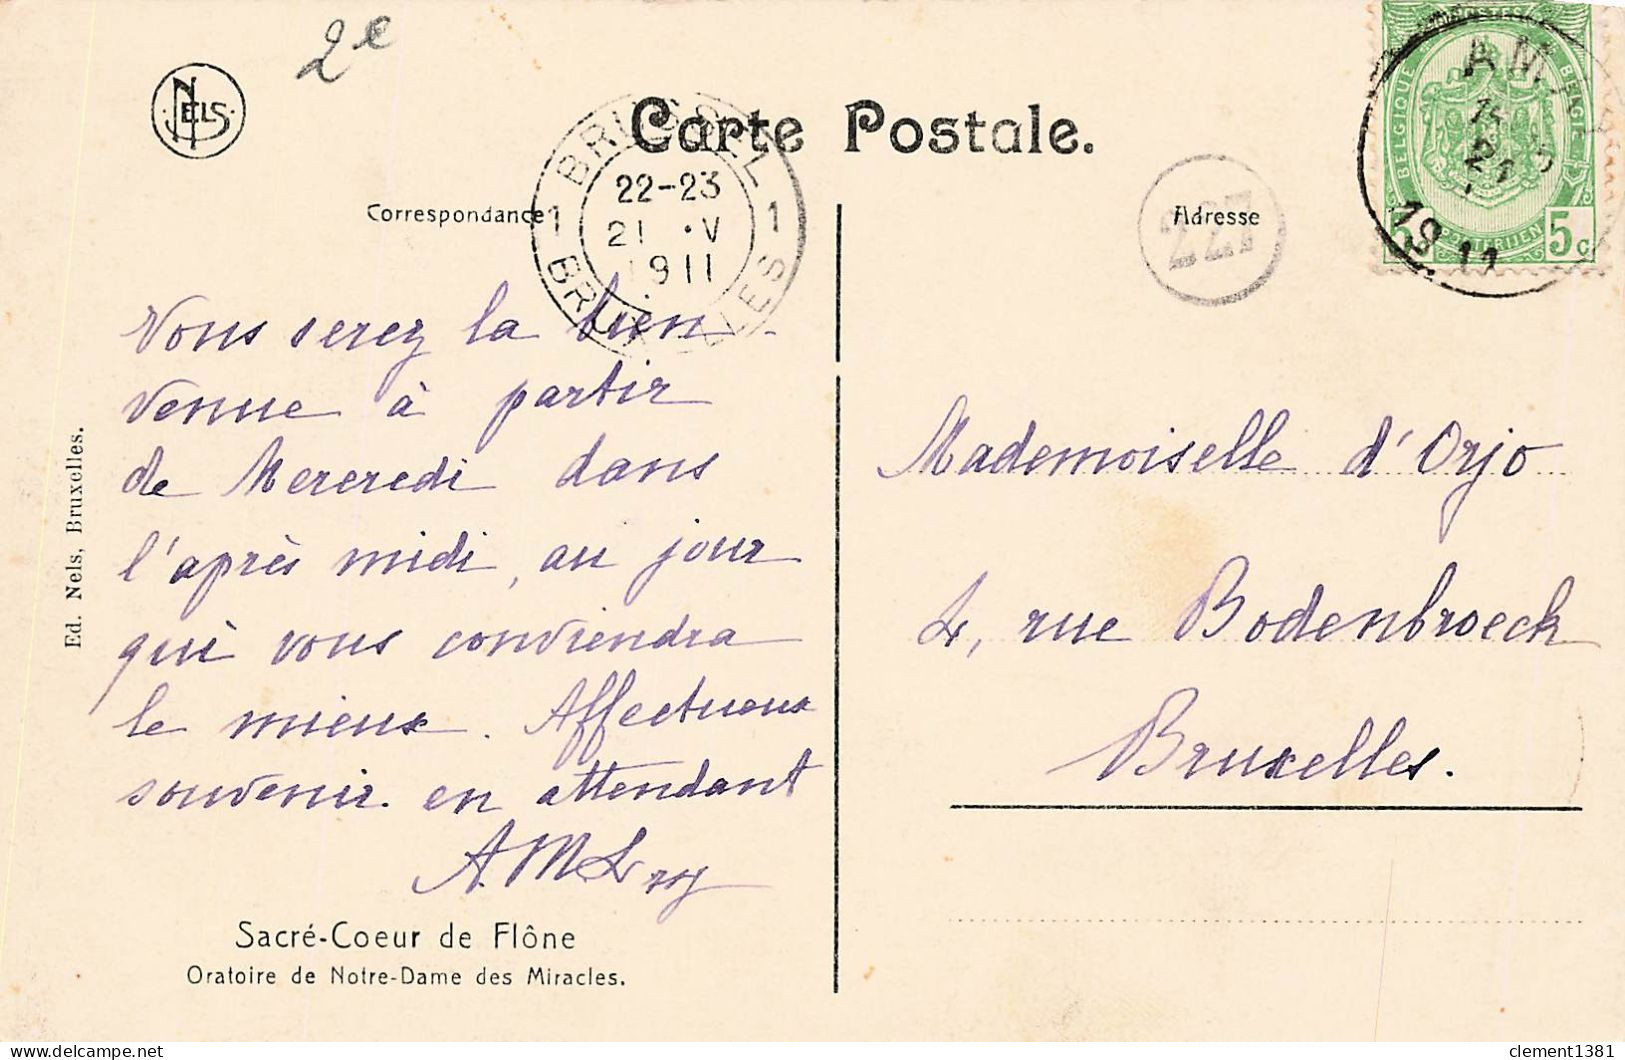 2e
NELS
Carte Postale.
BRUSSEL
1 1
22-23
21 ·V
1911
BRUXELLES
Correspondance
Adresse
227
POSTES
BELGIQUE
BELGIE
POSTERIJEN
5 5c
AM
21
1911
Vous serez la bien-
venue à partir
de Mercredi dans
l'après midi, au jour
qui vous conviendra
le mieux. Affectueux
souvenir en attendant
A.M Leroy
Mademoiselle d'Orjo
4, rue Bodenbroeck
Bruxelles.
Ed. Nels, Bruxelles.
Sacré-Coeur de Flône
Oratoire de Notre-Dame des Miracles.
clement1381